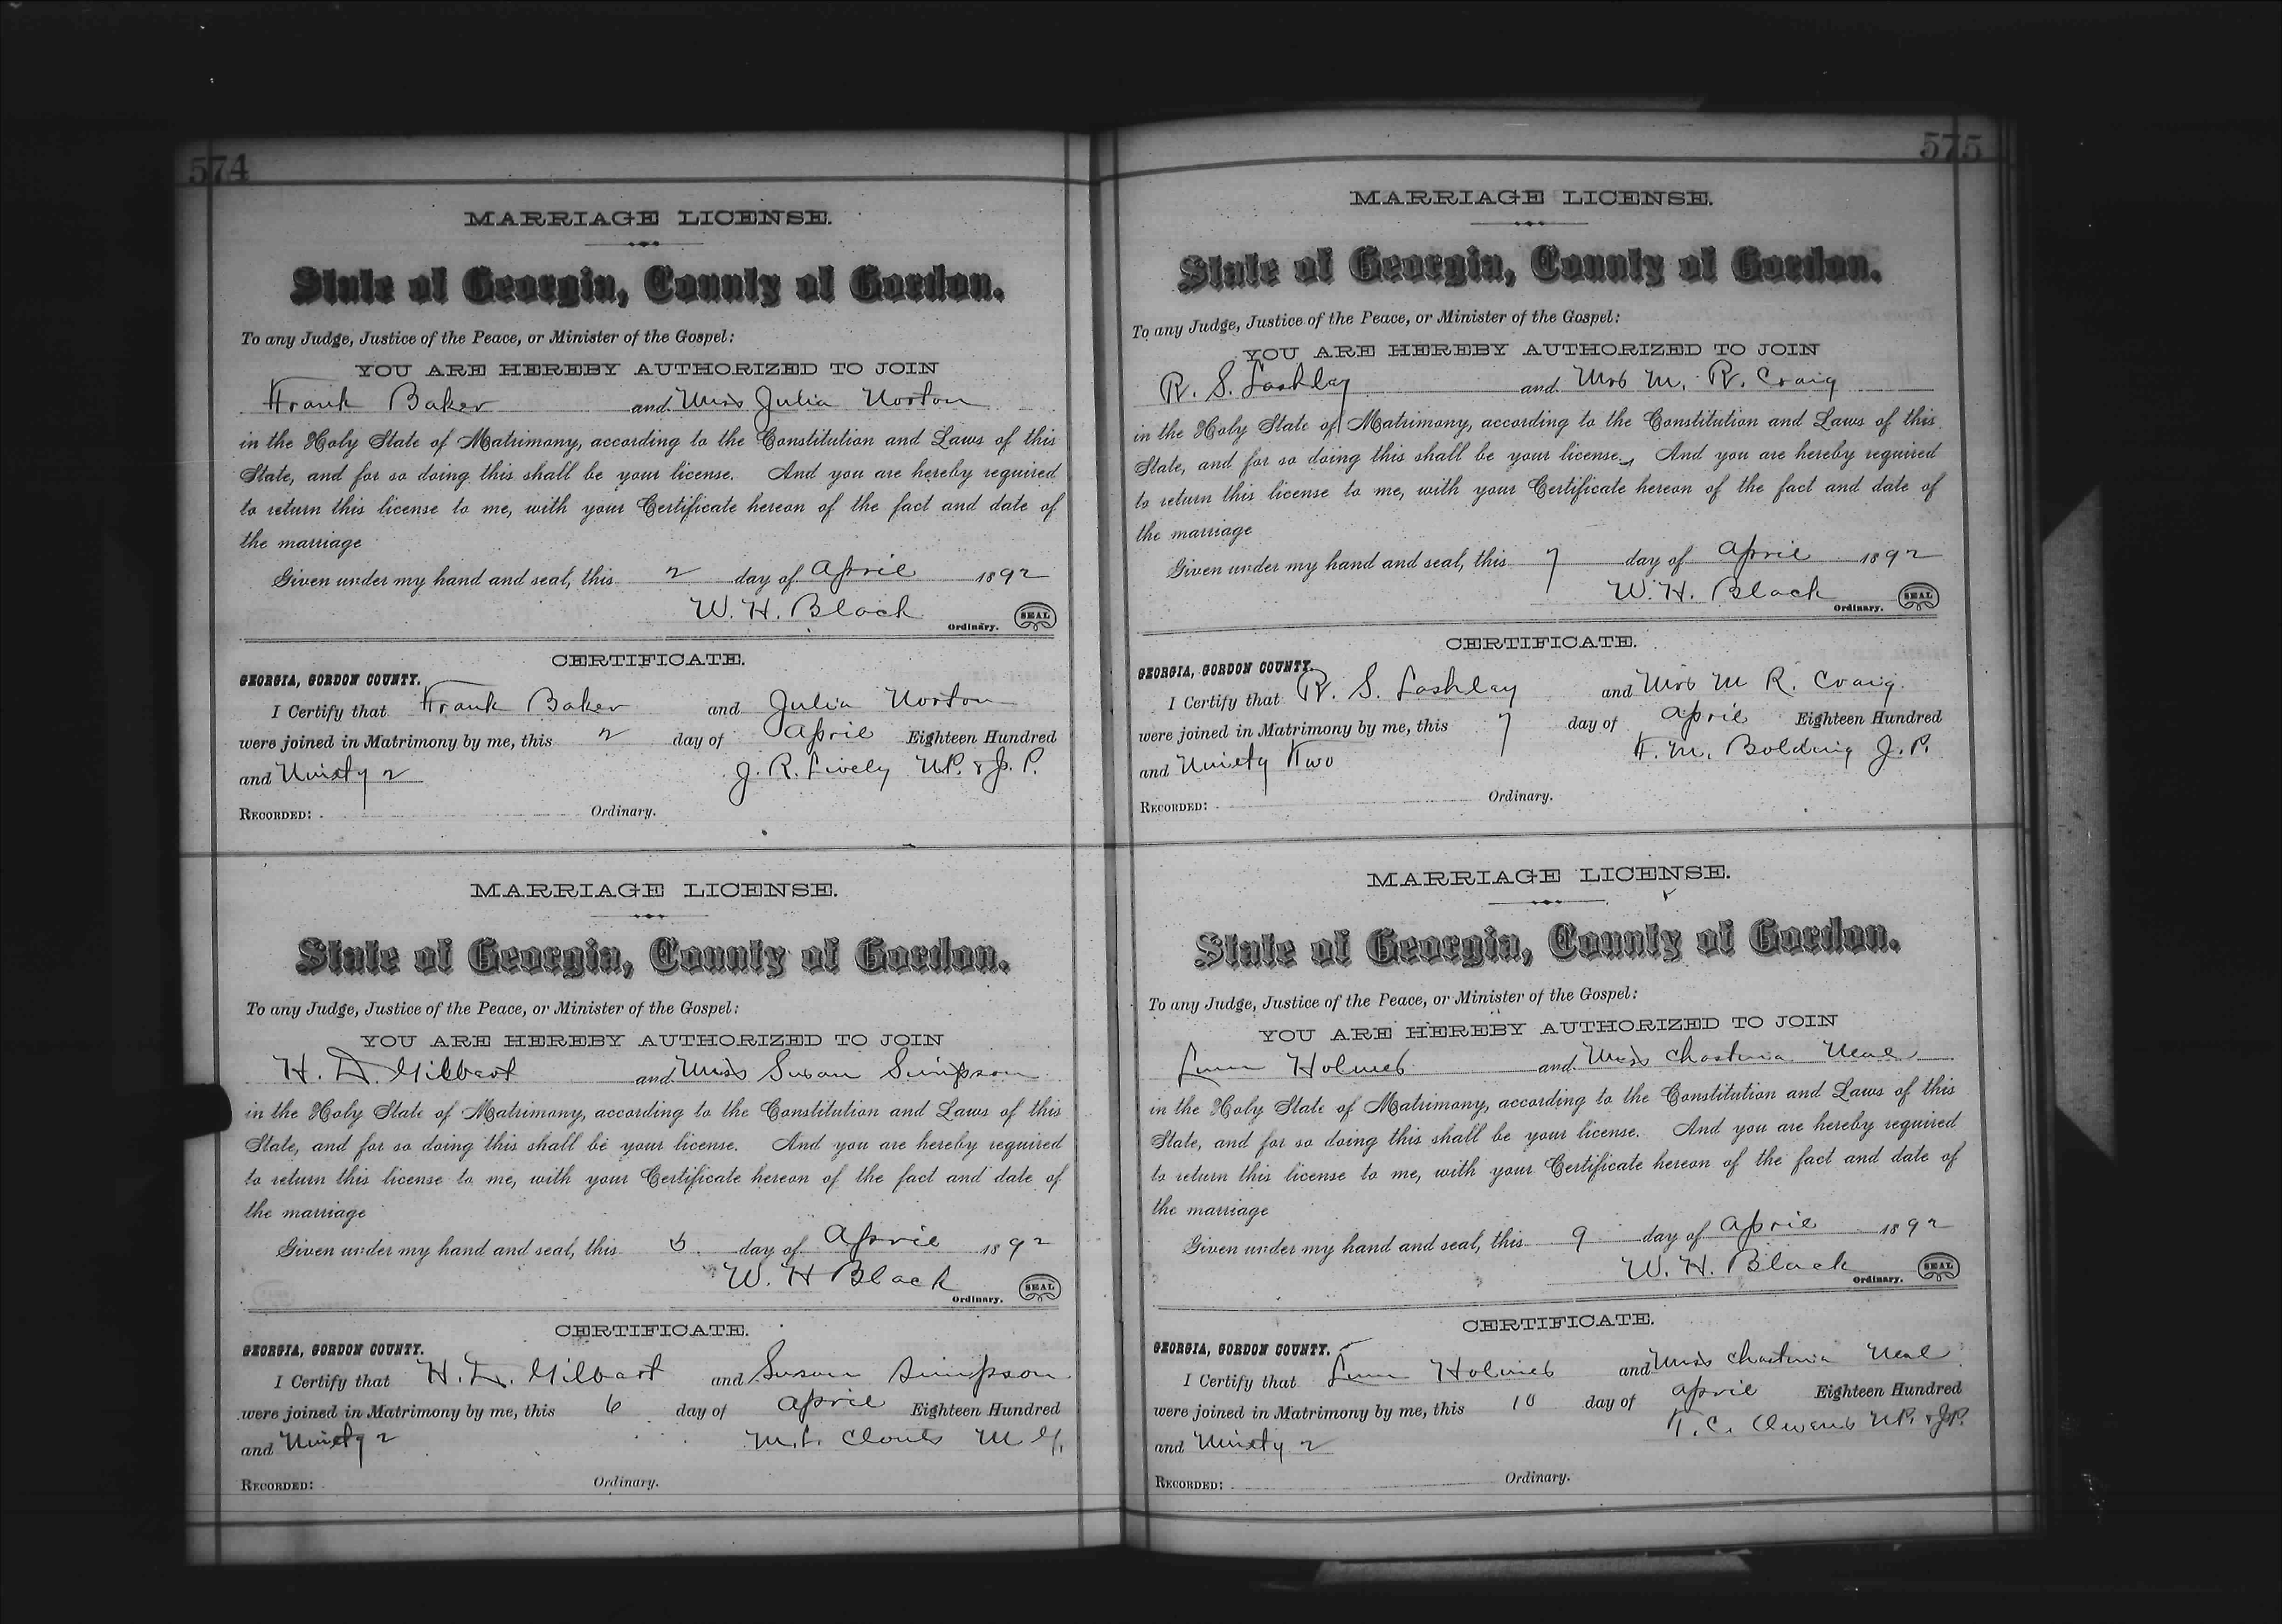 574
MARRIAGE LICENSE.
State of Georgia, County of Gordon.
To any Judge, Justice of the Peace, or Minister of the Gospel:
YOU ARE HEREBY AUTHORIZED TO JOIN
Frank Baker and Miss Julia Norton
in the Holy State of Matrimony, according to the Constitution and Laws of this
State, and for so doing this shall be your license. And you are hereby required
to return this license to me, with your Certificate hereon of the fact and date of
the marriage
Given under my hand and seal, this 2 day of April 1892
W. H. Black
Ordinary. SEAL
CERTIFICATE.
GEORGIA, GORDON COUNTY.
I Certify that Frank Baker and Julia Norton
were joined in Matrimony by me, this 2 day of April Eighteen Hundred
and Ninety 2 J. R. Lively N.P. & J. P.
RECORDED: Ordinary.
MARRIAGE LICENSE.
State of Georgia, County of Gordon.
To any Judge, Justice of the Peace, or Minister of the Gospel:
YOU ARE HEREBY AUTHORIZED TO JOIN
H. D. Gilbert and Miss Susan Simpson
in the Holy State of Matrimony, according to the Constitution and Laws of this
State, and for so doing this shall be your license. And you are hereby required
to return this license to me, with your Certificate hereon of the fact and date of
the marriage
Given under my hand and seal, this 5 day of April 1892
W. H Black
Ordinary. SEAL
CERTIFICATE.
GEORGIA, GORDON COUNTY.
I Certify that H. D. Gilbert and Susan Simpson
were joined in Matrimony by me, this 6 day of April Eighteen Hundred
and Ninety 2 M. L. Clouts M G.
RECORDED: Ordinary.
575
MARRIAGE LICENSE.
State of Georgia, County of Gordon.
To any Judge, Justice of the Peace, or Minister of the Gospel:
YOU ARE HEREBY AUTHORIZED TO JOIN
R. S. Lashley and Mrs M. R. Craig
in the Holy State of Matrimony, according to the Constitution and Laws of this
State, and for so doing this shall be your license. And you are hereby required
to return this license to me, with your Certificate hereon of the fact and date of
the marriage
Given under my hand and seal, this 7 day of April 1892
W. H. Black
Ordinary. SEAL
CERTIFICATE.
GEORGIA, GORDON COUNTY.
I Certify that R. S. Lashley and Mrs M R. Craig.
were joined in Matrimony by me, this 7 day of April Eighteen Hundred
and Ninety Two F. M. Bolding J. P.
RECORDED: Ordinary.
MARRIAGE LICENSE.
State of Georgia, County of Gordon.
To any Judge, Justice of the Peace, or Minister of the Gospel:
YOU ARE HEREBY AUTHORIZED TO JOIN
Holmes and Miss Neal
in the Holy State of Matrimony, according to the Constitution and Laws of this
State, and for so doing this shall be your license. And you are hereby required
to return this license to me, with your Certificate hereon of the fact and date of
the marriage
Given under my hand and seal, this 9 day of April 1892
W. H. Black
Ordinary. SEAL
CERTIFICATE.
GEORGIA, GORDON COUNTY.
I Certify that Holmes and Miss Neal
were joined in Matrimony by me, this 10 day of April Eighteen Hundred
and Ninety 2 T. C. Owens N.P. & J.P.
RECORDED: Ordinary.